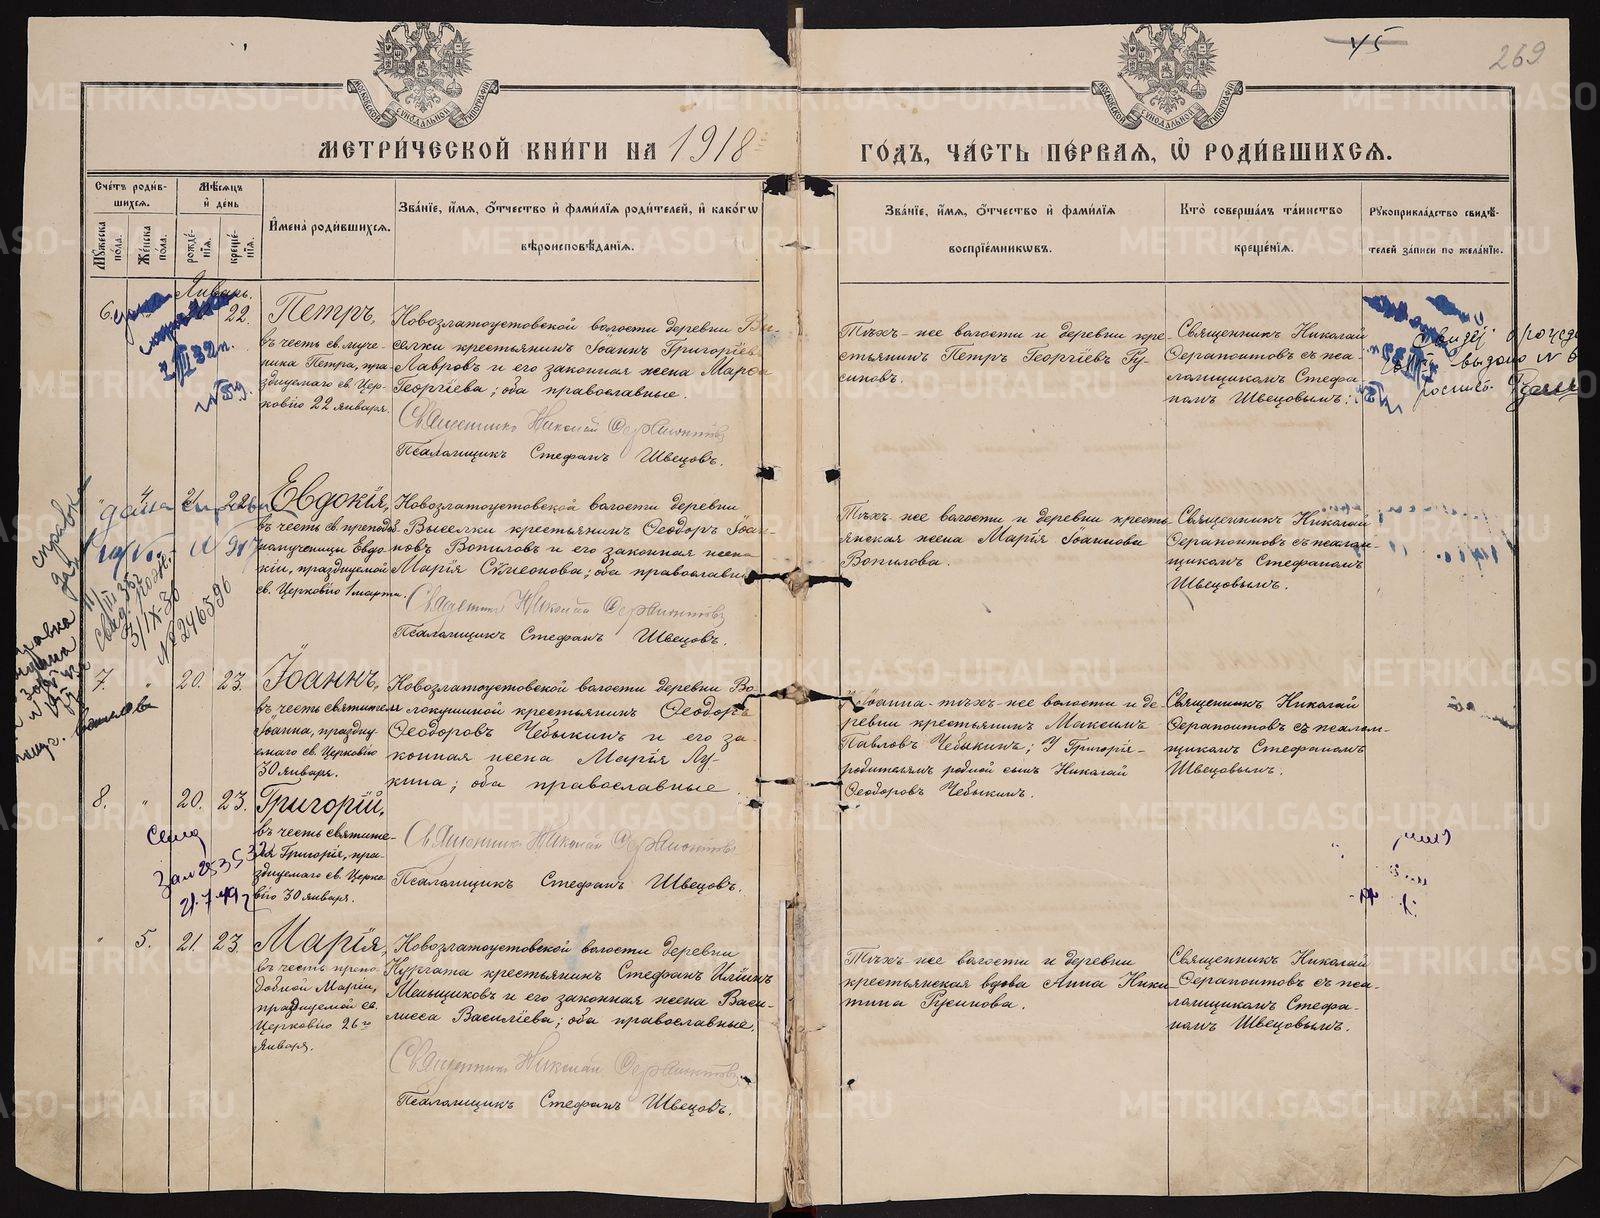 269
МОСКОВСКОЙ СУНОДАЛЬНОЙ ТИПОГРАФІИ
МОСКОВСКОЙ СУНОДАЛЬНОЙ ТИПОГРАФІИ
МЕТРИ́ЧЕСКОЙ КНИ́ГИ НА 1918 ГО́ДЪ, ЧА́СТЬ ПЕ́РВАЯ, Ѡ҆ РОДИ́ВШИХСЯ.
Сче́тъ роди́в-
шихся.
Мѣ́сяцъ
и҆ де́нь
Мꙋ́жеска
по́ла.
Же́нска
по́ла.
рожде́-
нїя.
креще́-
нїя.
И҆мена̀ роди́вшихся.
Зва́нїе, и҆́мя, ѻ҆́тчество и҆ фами́лїя роди́телей, и҆ како́гѡ
вѣроисповѣ́данїя.
Зва́нїе, и҆́мя, ѻ҆́тчество и҆ фами́лїя
воспрїе́мниковъ.
Кто̀ соверша́лъ та́инство
креще́нїя.
Рꙋкоприкла́дство свидѣ́-
телей за́писи по жела́нїю.
Январь.
6.
22.
Петръ,
въ честь св. муче-
ника Петра, пра-
зднуемаго св. Цер-
ковію 22 января.
Новозлатоустовской волости деревни Вы-
селки крестьянинъ Іоаннъ Григоріевъ
Лавровъ и его законная жена Марѳа
Георгіева; оба православные.
Священникъ Николай Серапонтовъ
Псаломщикъ Стефанъ Швецовъ.
Тѣхъ-же волости и деревни кре-
стьянинъ Петръ Георгіевъ Ру-
синовъ.
Священникъ Николай
Серапонтовъ съ пса-
ломщикомъ Стефа-
номъ Швецовымъ.
выдано №
4.
21.
22.
Евдокія,
въ честь св. препод.
мученицы Евдо-
кіи, празднуемой
св. Церковію 1 марта.
Новозлатоустовской волости деревни
Выселки крестьянинъ Ѳеодоръ Іоан-
новъ Вопиловъ и его законная жена
Марія Симеонова; оба православные.
Священникъ Николай Серапонтовъ
Псаломщикъ Стефанъ Швецовъ.
Тѣхъ-же волости и деревни кресть-
янская жена Марія Іоаннова
Вопилова.
Священникъ Николай
Серапонтовъ съ псалом-
щикомъ Стефаномъ
Швецовымъ.
справка
3/IX-36
№246596
7.
"
20.
23.
Іоаннъ,
въ честь святителя
Іоанна, праздну-
емаго св. Церковію
30 января.
Новозлатоустовской волости деревни Во-
локушиной крестьянинъ Ѳеодоръ
Ѳеодоровъ Чебыкинъ и его за-
конная жена Марія Лу-
кина; оба православные.
У Іоанна-тѣхъ-же волости и де-
ревни крестьянинъ Максимъ
Павловъ Чебыкинъ; У Григорія-
родителямъ родной сынъ Николай
Ѳеодоровъ Чебыкинъ.
Священникъ Николай
Серапонтовъ съ псалом-
щикомъ Стефаномъ
Швецовымъ.
8.
"
20.
23.
Григорій,
въ честь святите-
ля Григорія, пра-
зднуемаго св. Церко-
вію 30 января.
Священникъ Николай Серапонтовъ
Псаломщикъ Стефанъ Швецовъ.
"
5.
21.
23.
Марія,
въ честь препо-
добной Маріи,
празднуемой св.
Церковію 26го
января.
Новозлатоустовской волости деревни
Кургата крестьянинъ Стефанъ Иліинъ
Меньщиковъ и его законная жена Васи-
лисса Василіева; оба православные.
Священникъ Николай Серапонтовъ
Псаломщикъ Стефанъ Швецовъ.
Тѣхъ-же волости и деревни
крестьянская вдова Анна Ники-
тина Русинова.
Священникъ Николай
Серапонтовъ съ пса-
ломщикомъ Стефа-
номъ Швецовымъ.
METRIKI.GASO-URAL.RU